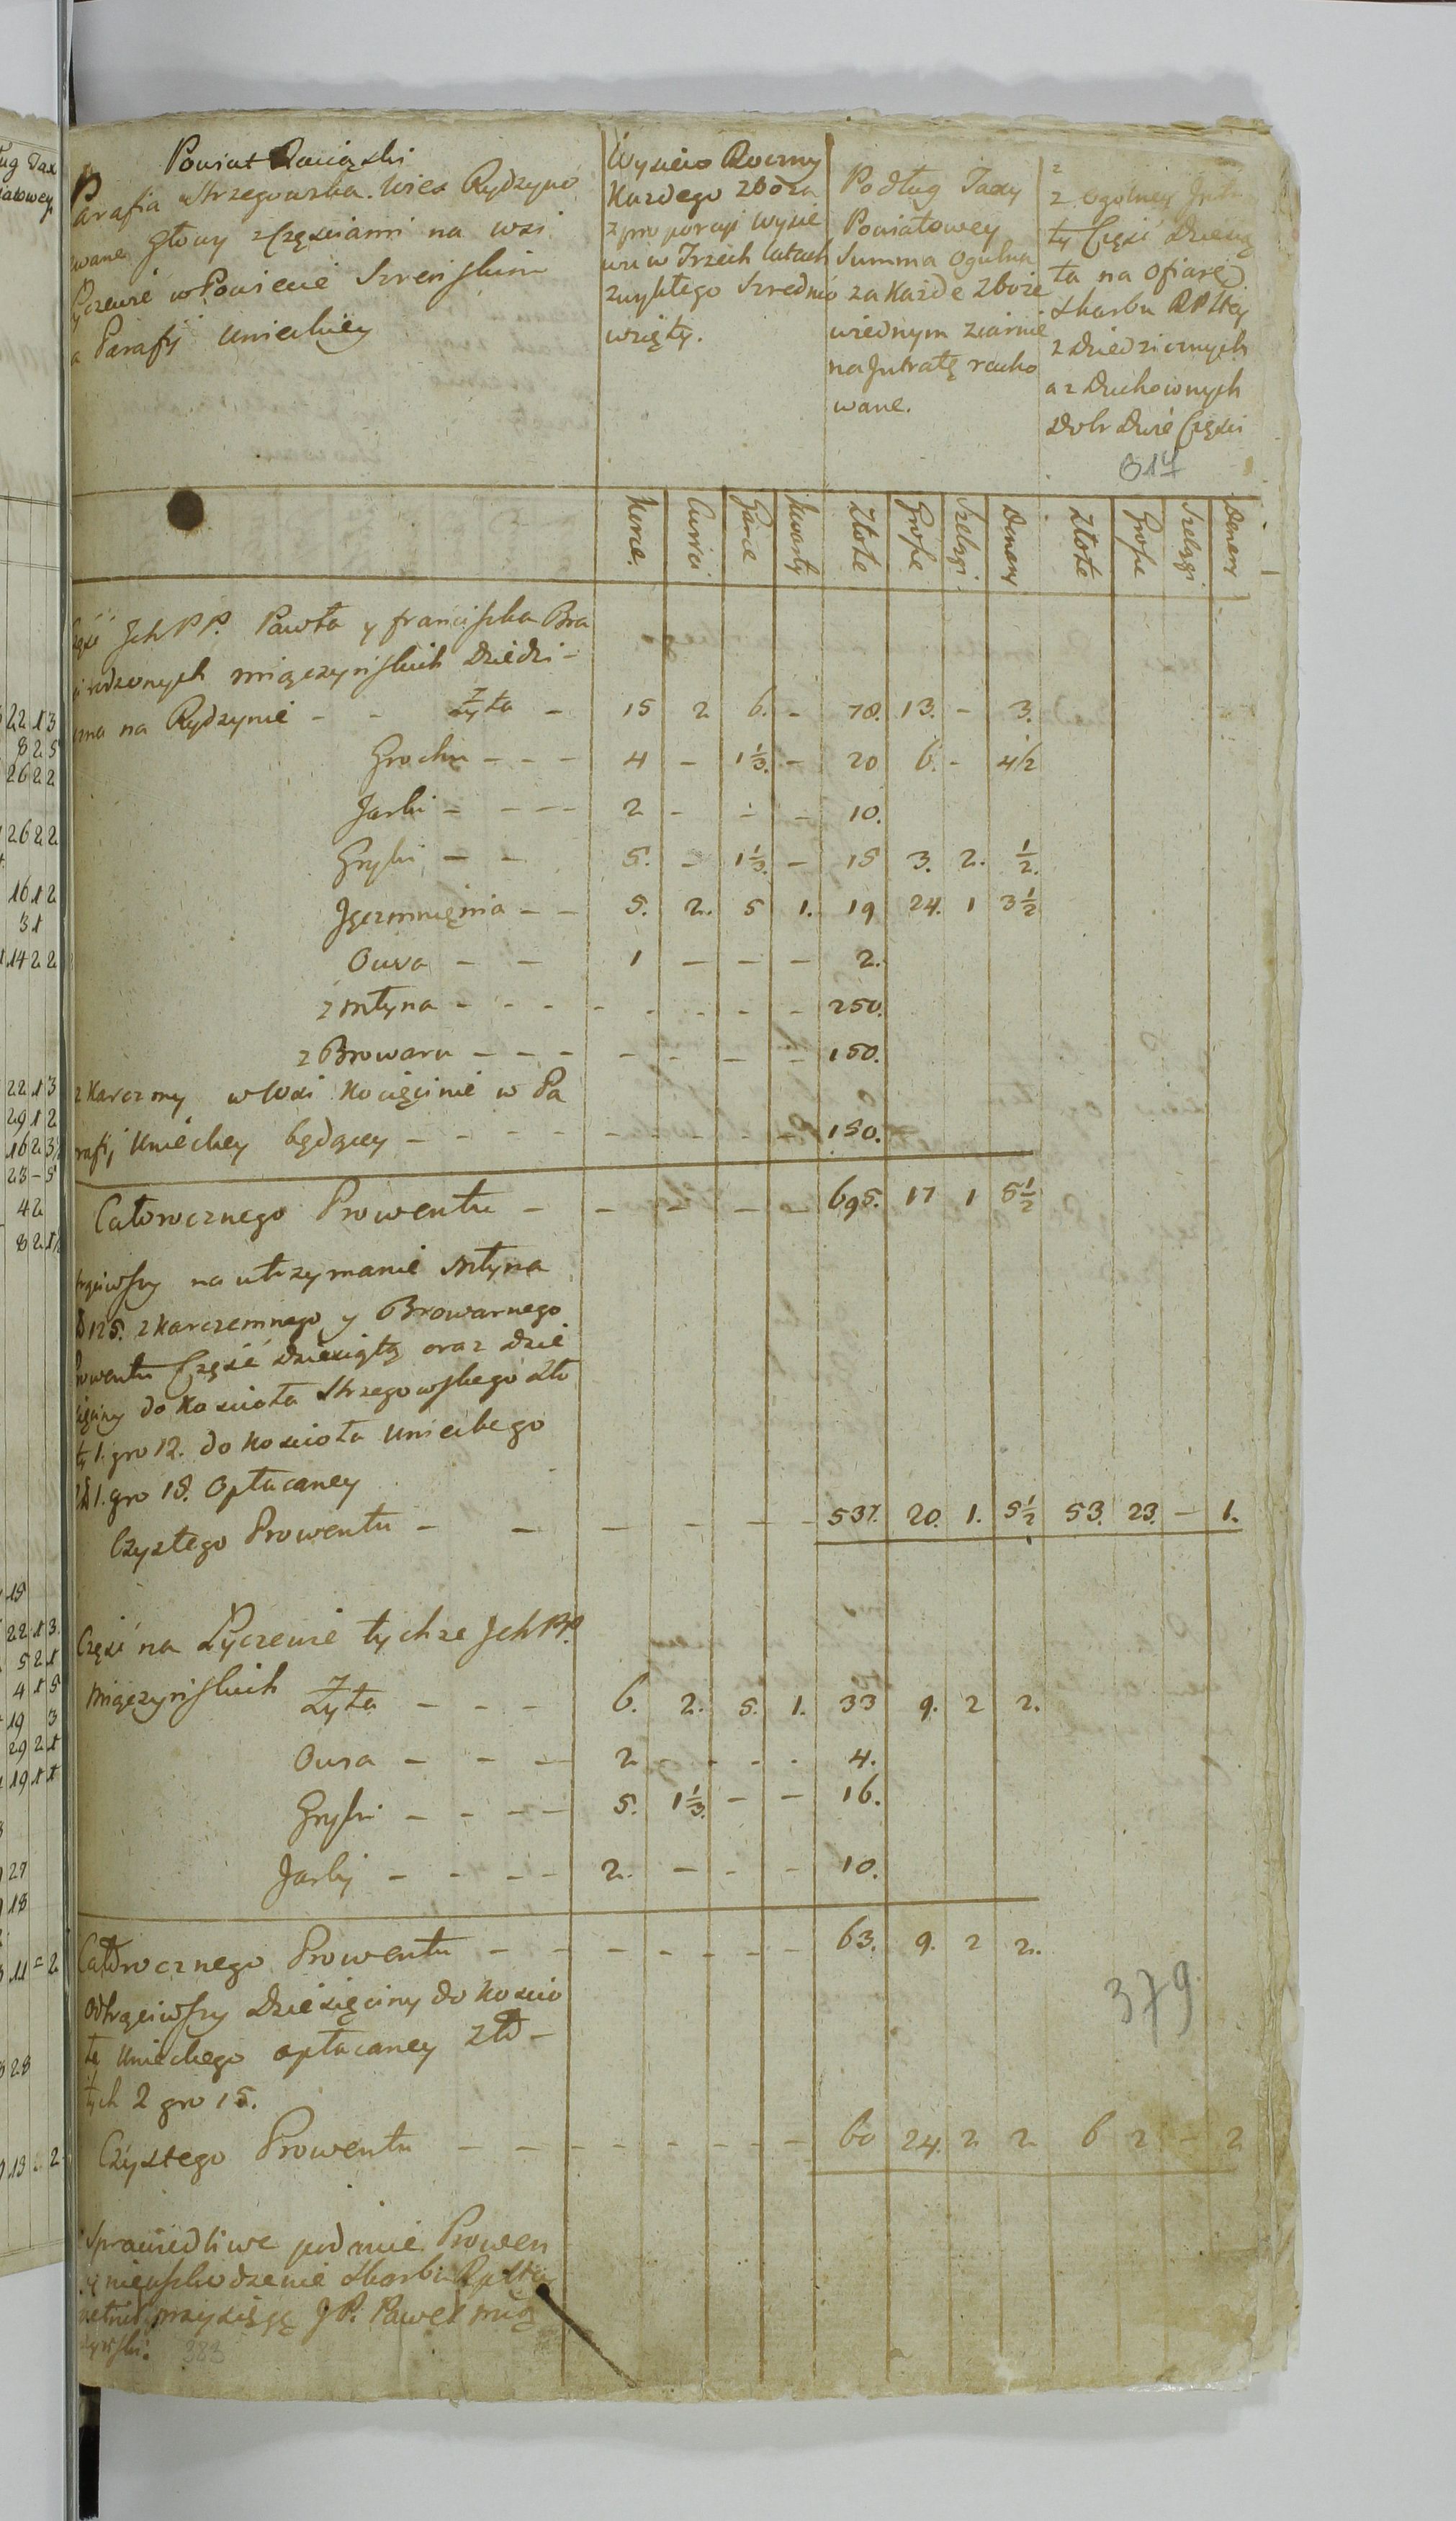 Powiat Raciąski
Parafia Strzegowska. Wieś Rydzyno
zwane Głowy z Częściami na wsi
Łyczewie w Powiecie Szreńskim
a Parafij Unieckiey
Wysiew Roczny
Każdego zboża
z proporcyi wysie
wu w Trzech latach
zwykłego szrednio
wzięty.
Podług Taxy
Powiatowey
Summa Ogulna
za Każde zboże
wiednym ziarnie
na Jntratę racho
wane.
z ogolney Jntra
ty Część Dziesią
ta na Ofiarę
skarbu RPltey
z Dziedzicznych
a z Duchownych
Dobr Dwie Części
317
Korce. Cwierci Garce Kwarty Złote Grosze Szelągi Denary Złote Grosze Szelągi Denary
Część JchPP. Pawła y franciszka Bra
ci rodzonych Miączyńskich Dziedzi-
na Rydzynie - - Żyta - 15 2 6. - 78. 13. - 3.
Grochu - - - 4 - 1 1/3. - 20 6. - 4 1/2
Jarki - - - - 2 - - - 10.
Gryki - - 5. - 1 1/3. - 15 3. 2. 1/2.
Jęczmnięnia - - 5. 2. 5 1. 19 24. 1 3 1/2
Owsa - - 1 - - - 2.
z Młyna - - - - - - - - 250.
z Browaru - - - - - - - 150.
z Karczmy w Wsi Kocięcinie w Pa
rafij Unieckey będącey - - - - - - - - 150.
Całorocznego Prowentu - - - - - 695. 17 1 5 1/2
na utrzymanie Młyna
125. z Karczemnego y Browarnego
Prowentu Część dziesiątą oraz dzie
sięciny do Koscioła Strzegowskiego Zło
ty 1. gro 12. do Koscioła Unieckego
1. gro 18. Opłacaney
Czystego Prowentu - - - - - - 537. 20. 1. 5 1/2 53. 23. - 1.
Część na Łyczewie tychże JchPP.
Miączyńskich Żyta - - - 6. 2. 5. 1. 33 9. 2 2.
Owsa - - - 2 - - - 4.
Gryki - - - - 5. 1 1/3. - - 16.
Jarky - - - - 2. - - - 10.
Całorocznego Prowentu - - - - - - - 63. 9. 2 2.
Odtrąciwszy Dziesięciny do Koscio
ła Unieckego opłacaney Zło-
tych 2 gro 15.
Czystego Prowentu - - - - - - - - 60 24. 2 2 6 2 - 2
379.
Sprawiedliwe podanie Prowen
skarbu Rpltey
przysiągę JP. Paweł Mią
czyński.
383